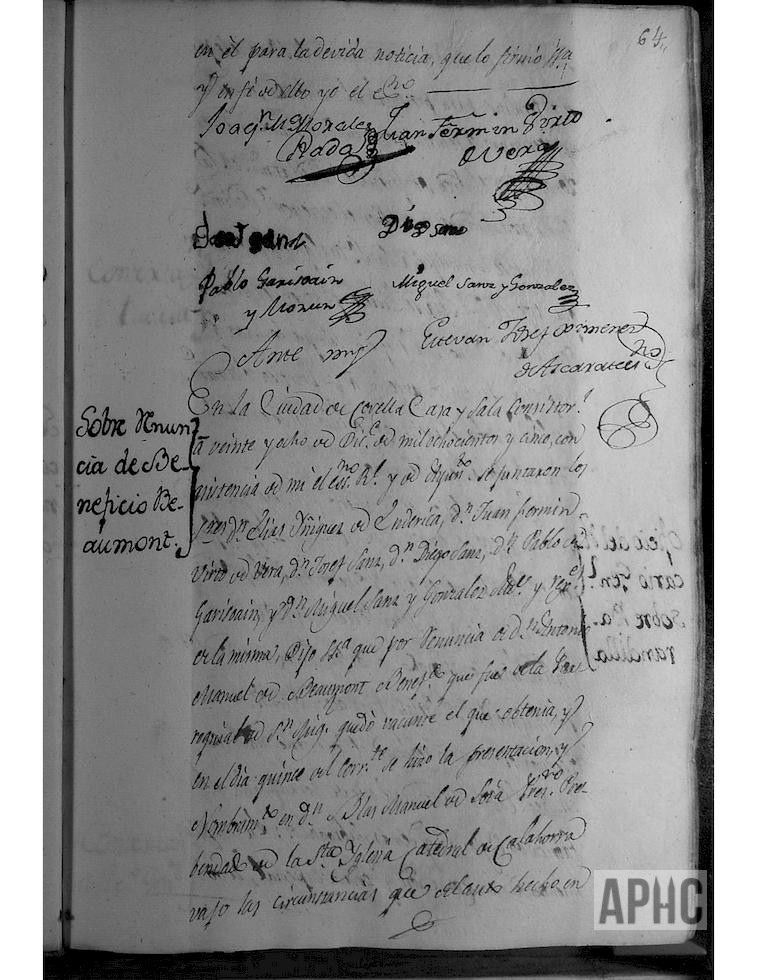 64
en él para la devida noticia, que lo firmó
y en fé de ello yo el Esno
Joaqn Morales
Rada
Juan Fermin Virto
de Vera
Josef Sanz
Diego Sanz
Pablo Garisoain
y Moreun
Miguel Sanz y Gonzalez
Ante mi
Estevan Josef Ximenez
de Ascarate
Sobre Renun
cia de Be-
neficio Be-
aumont.
En la Ciudad de Corella Casa y Sala Consistorl
a veinte y ocho de Dice de mil ochocientos y cinco, con
asistencia de mi el Esno Rl y de Ayunto se juntaron los
Sres Dn Elias Yñiguez de dn Juan Fermin
Virto de Vera, dn Josef Sanz, dn Diego Sanz, dn Pablo
Garisoain, y dn Miguel Sanz y Gonzalez y
de la misma, Dijo que por Renuncia de dn Antonio
Manuel de Beaumont Benefdo que fue de la Parro
quial de Sn Mig. quedó vacante el que obtenia, y
en el dia quince del Corrte se hizo la presentacion, y
Nombrimto en dn Blas Manuel de Presvro Pre-
bendado de la Sta Yglesia Catedral de Calahorra
vajo las circunstancias que del auto hecho en
APHC